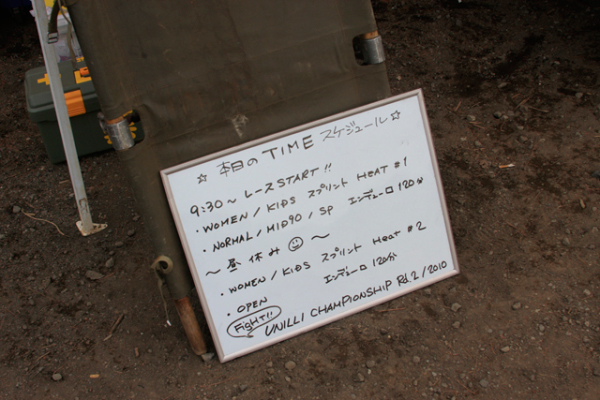 ☆ 本日の TIME スケジュール ☆
9:30～ レース START !!
・WOMEN / KIDS スプリント HEAT #1
・NORMAL / MID90 / SP エンデューロ 120分
～ 昼休み ☺ ～
・WOMEN / KIDS スプリント HEAT #2
・OPEN エンデューロ 120分
FigHT!! UNILLI CHAMPIONSHIP Rd.2 / 2010